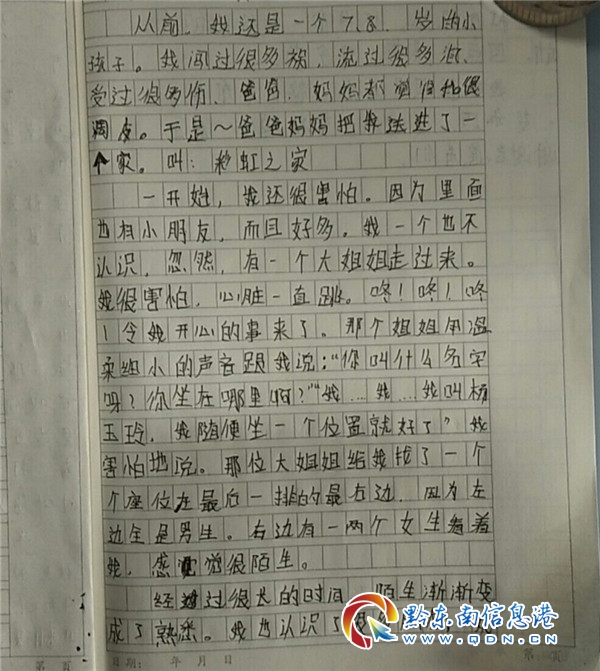 从前，我还是一个7、8、岁的小
孩子。我闯过很多祸，流过很多泪、
受过很多伤、爸爸、妈妈都觉得我很
调皮。于是～爸爸妈妈把我送进了一
个家。叫：彩虹之家
一开始，我还很害怕。因为里面
也有小朋友，而且好多。我一个也不
认识，忽然，有一个大姐姐走过来。
我很害怕，心脏一直跳。咚！咚！咚
！令我开心的事来了。那个姐姐用温
柔细小的声音跟我说：“你叫什么名字
呀？你坐在哪里啊？”“我……我……我叫杨
玉玲，我随便坐一个位置就好了”我
害怕地说。那位大姐姐给我找了一个
个座位在最后一排的最右边，因为左
边全是男生。右边有一两个女生看着
我，感觉很陌生。
经过很长的时间，陌生渐渐变
成了熟悉。我也认识了
黔东南信息港
WWW.QDN.CN
第 页 日期： 年 月 日